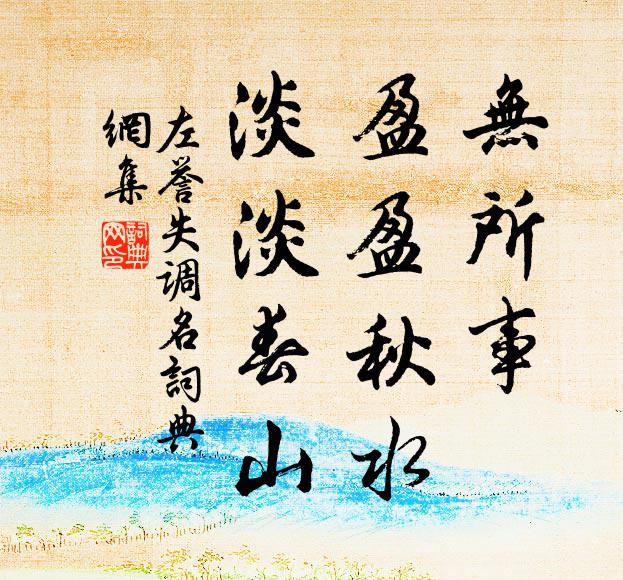 無所事
盈盈秋水
淡淡春山
左誉失调名詞典
網集
詞典
网印